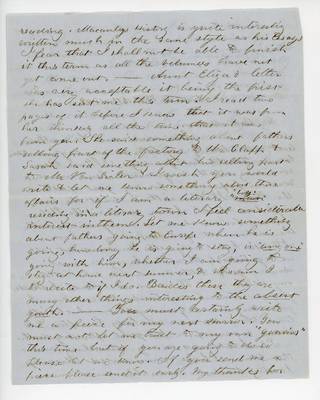 reading. Macaulay's History is quite interesting
written much in the same style as his Essays
I fear that I shall not be able to finish
it this term as all the volumes have not
yet come out. — Aunt Eliza's letter
was very acceptable it being the first
she has sent me this term. I read two
pages of it before I knew that it was from
her thinking all the time that it was
from you. She said something about fathers
selling part of the factory to Mr Clapp &
Sarah said something about his selling part
to Mr Van Sinter. I wish you would
write & let me know something about these
affairs for if I am a literary
residing in a literary town I feel considerable
interest in them. Let me know something
about fathers going to Europe when he is
going, how long he is going to stay, is any one
going with him, whether I am going to
stay at home next summer, & whom I
recite to if I do. Besides these there are
many other things interesting to the absent
youth. — You must certainly write
me a piece for my next
must not let me trust to my own "genius"
this time but if you are going to
please let me know. If you send me a
piece please send it early. My thanks for